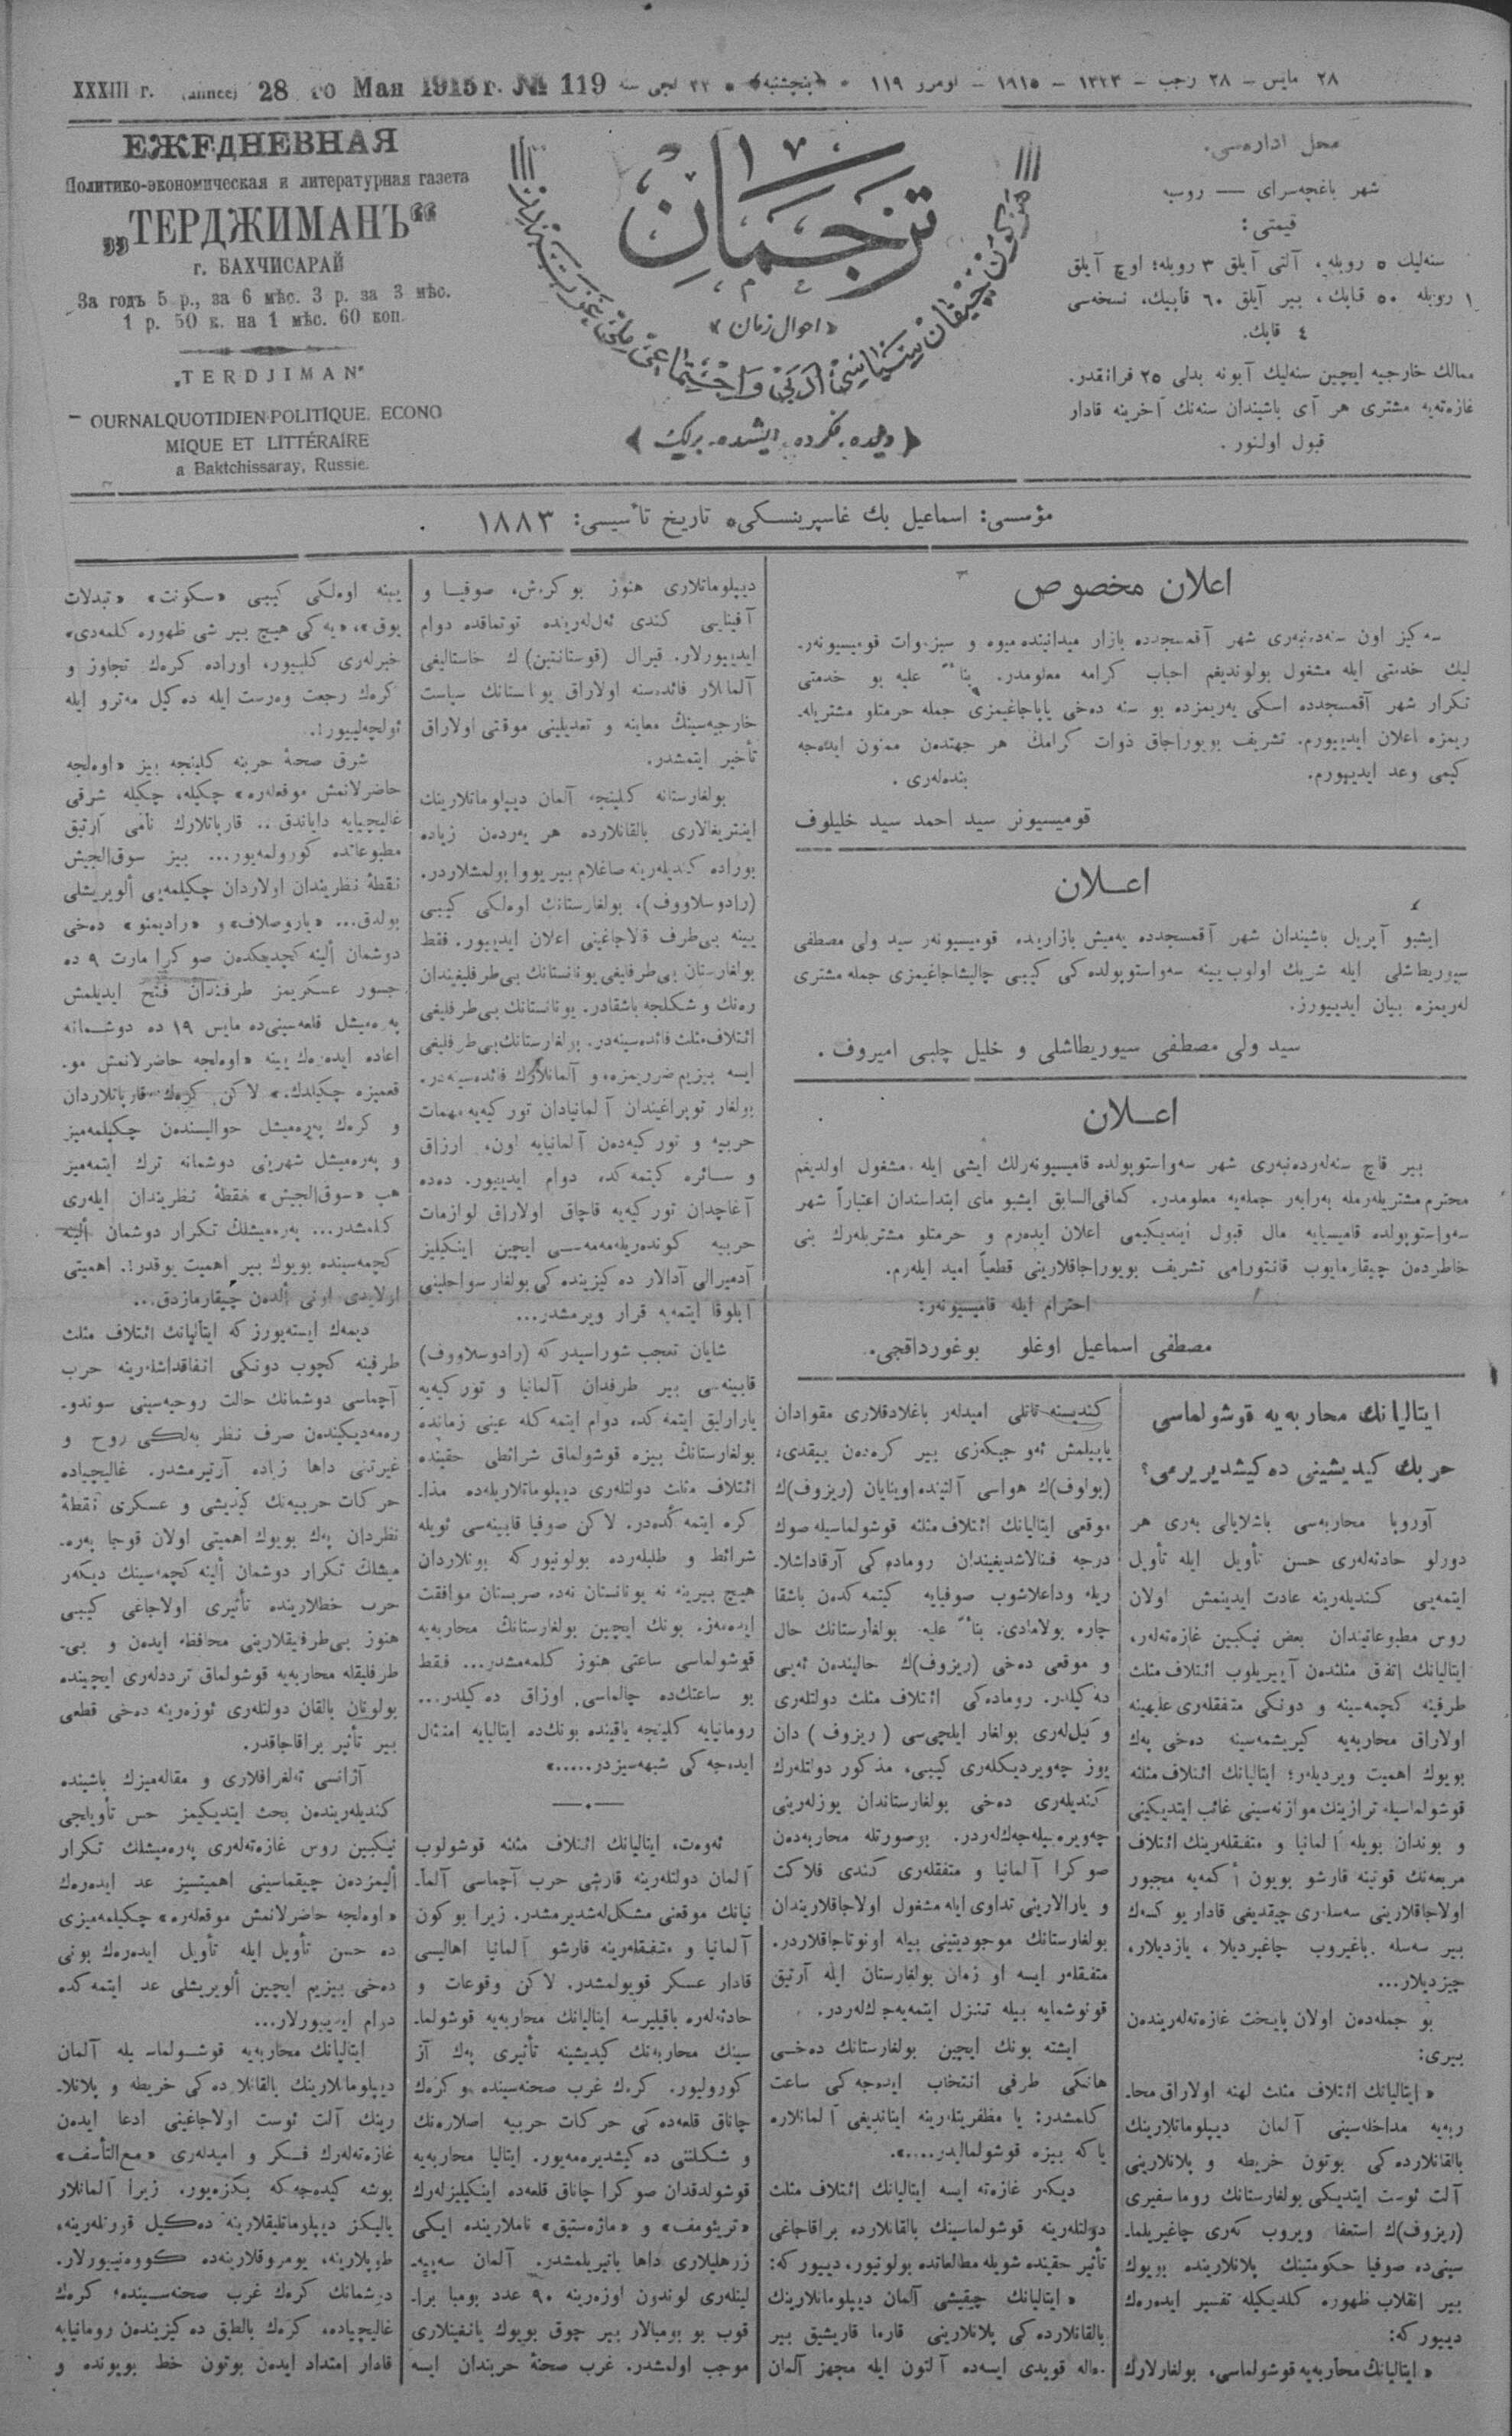 XXXIII г. (année) 28 го Мая 1915 г. № 119
٢٨ مایس – ٢٨ رجب – ١٣٣٣ – ١٩١٥ – نومرو ١١٩ * «پنچشنبه» * ٣٣ لجی سنه
ЕЖЕДНЕВНАЯ
Политико-экономическая и литературная газета
„ТЕРДЖИМАНЪ“
г. БАХЧИСАРАЙ
За годъ 5 р., за 6 мѣс. 3 р. за 3 мѣс.
1 р. 50 к. на 1 мѣс. 60 коп.
„TERDJIMAN"
OURNALQUOTIDIEN POLITIQUE, ECONO
MIQUE ET LITTÉRAIRE
a Baktchissaray, Russie.
ترجمان
«احوال زمان»
محل ادارەسی.
شهر باغچەسرای — روسیه
قیمتی:
سنەلیك ٥ روبله، آلتی آیلق ٣ روبله؛ اوچ آیلق
١ روبله ٥٠ قاپك، بیر آیلق ٦٠ قاپیك، نسخەسی
٤ قاپك.
ممالك خارجیه ایچین سنەلیك آبونه بدلی ٢٥ فرانقدر.
غازەتەیه مشتری هر آی باشیندان سنەنك آخرینه قادار
قبول اولنور.
مؤسسی: اسماعیل بك غاسپرینسکی* تاریخ تأسیسی: ١٨٨٣
اعلان مخصوص
سەکیز اون سنەدەنبەری شهر آقمسجدده بازار میدانینده میوه و سبزەوات قومیسیونەر-
لیك خدمتی ایله مشغول بولوندیغم احباب کرامه معلومدر. بناءً علیه بو خدمتی
تکرار شهر آقمسجدده اسکی یەریمزده بو سنه دەخی یاپاجاغیمزی جمله حرمتلو مشتریلە-
ریمزه اعلان ایدییورم. تشریف بویوراجاق ذوات کرامك هر جهتدەن ممنون ایدەجه
کیمی وعد ایدییورم. بندەلەری.
قومیسیونر سید احمد سید خلیلوف
اعــلان
ایشبو آپریل باشیندان شهر آقمسجدده یەمیش بازاریده قومیسیونەر سید ولی مصطفی
سیوریطاشلی ایله شریك اولوب یینه سەواستوپولده کی کیبی چالیشاجاغیمزی جمله مشتری
لەریمزه بیان ایدییورز.
سید ولی مصطفی سیوریطاشلی و خلیل چلبی امیروف.
اعــلان
بیر قاچ سنەلەردەنبەری شهر سەواستوپولده قامیسیونەرلك ایشی ایله مشغول اولدیغم
محترم مشتریلەرمله بەرابەر جملەیه معلومدر. کمافی‌السابق ایشبو مای ابتداسندان اعتباراً شهر
سەواستوپولده قامیسیایه مال قبول ایتدیکیمی اعلان ایدەرم و حرمتلو مشتریلەرك بنی
خاطردەن چیقارمایوب قانتورامی تشریف بویوراجاقلارینی قطعیاً امید ایلەرم.
احترام ایله قامیسیونەر:
مصطفی اسماعیل اوغلو بوغورداقجی.
ایتالیانك محاربەیه قوشولماسی
حربك کیدیشینی دەکیشدیریرمی؟
آوروپا محاربەسی باشلایالی بەری هر
دورلو حادثەلەری حسن تأویل ایله تأویل
ایتمەیی کندیلەرینه عادت ایدینمش اولان
روس مطبوعاتیندان بعض نیکبین غازەتەلەر،
ایتالیانك اتفق مثلثدەن آییریلوب ائتلاف مثلث
طرفینه کچمەسینه و دونکی متفقلەری علیهینه
اولاراق محاربەیه کیریشمەسینه دەخی پەك
بویوك اهمیت ویردیلەر؛ ایتالیانك ائتلاف مثلثه
قوشولماسیله ترازینك موازنەسینی غائب ایتدیکینی
و بوندان بویله آلمانیا و متفقلەرینك ائتلاف
مربعەنك قوتینه قارشو بویون أکمەیه مجبور
اولاجاقلارینی سەسلەری چیقدیغی قادار یو کسەك
بیر سەسله باغیروب چاغیردیلا، یازدیلار،
چیزدیلار...
بو جملەدەن اولان پایتخت غازەتەلەریندەن
بیری:
«ایتالیانك ائتلاف مثلث لهنه اولاراق محا-
ربەیه مداخلەسینی آلمان دیپلوماتلارینك
بالقانلاردەکی بوتون خریطه و پلانلارینی
آلت ئوست ایتدیکی بولغارستانك روما سفیری
(ریزوف)ك استعفا ویروب کەری چاغیریلما-
سینی‌ده صوفیا حکومتینك پلانلارینده بویوك
بیر انقلاب ظهوره کلدیکیله تفسیر ایدەرەك
دییورکه:
«ایتالیانك محاربەیه قوشولماسی، بولغارلارك
کندیسنه تانلی امیدلەر باغلادقلاری مقوادان
یاپیلمش ئەو جیکەزی بیر کرەدەن ییقدی،
(بولوف)ك هواسی آلتینده اویتایان (ریزوف)ك
موقعی ایتالیانك ائتلاف مثلثه قوشولماسیله صوك
درجه فنالاشدیغیندان رومادەکی آرقاداشلا-
ریله وداعلاشوب صوفیایه کیتمەکدەن باشقا
چاره بولامادی. بناءً علیه بولغارستانك حال
و موقعی دەخی (ریزوف)ك حالیندەن ئەیی
دەکیلدر. رومادەکی ائتلاف مثلث دولتلەری
وکیللەری بولغار ایلچی‌سی (ریزوف) دان
یوز چەویردیکلەری کیبی، مذکور دولتلەرك
کندیلەری دەخی بولغارستاندان یوزلەرینی
چەویرەبیلەجەكلەردر. بوصورتله محاربەدەن
صوکرا آلمانیا و متفقلەری کندی فلاکت
و یارالارینی تداوی ایله مشغول اولاجاقلاریندان
بولغارستانك موجودیتینی بیله اونوتاجاقلاردر.
متفقلەر ایسه او زمان بولغارستان ایله آرتیق
قونوشمایه بیله تنزل ایتمەیەجەكلەردر.
ایشته بونك ایچین بولغارستانك دەخی
هانکی طرفی انتخاب ایدەجەکی ساعت
کلمشدر: یا مظفریتلەرینه ایناندیغی آلمانلاره
یاکه بیزه قوشولمالیدر....».
دیکەر غازەته ایسه ایتالیانك ائتلاف مثلث
دولتلەرینه قوشولماسینك بالقانلارده براقاجاغی
تأثیر حقینده شویله مطالعاتده بولونیور، دییورکه:
«ایتالیانك چیقیشی آلمان دیپلوماتلارینك
بالقانلاردەکی پلانلارینی قارما قاریشیق بیر
حاله قویدی ایسەده آلتون ایله مجهز آلمان
دیپلوماتلاری هنوز بوکرش، صوفیا و
آفینایی کندی ئەللەرینده توتماقده دوام
ایدییورلار. قیرال (قوستانتین)ك خاستالیغی
آلمانلار فائدەسنه اولاراق یونانستانك سیاست
خارجیەسینك معاینه و تعدیلینی موقتی اولاراق
تأخیر ایتمشدر.
بولغارستانه کلینجه آلمان دیپلوماتلارینك
اینتریغالاری بالقانلارده هر یەردەن زیاده
بوراده کندیلەرینه صاغلام بیر یووا بولمشلاردر.
(رادوسلاووف)، بولغارستانك اوەلکی کیبی
یینه بی‌طرف قالاجاغینی اعلان ایدییور. فقط
بولغارستان بی‌طرفلیغی یونانستانك بی‌طرفلیغیندان
رەنك و شکلجه باشقادر. یونانستانك بی‌طرفلیغی
ائتلاف مثلث فائدەسینەدر. بولغارستانك بی‌طرفلیغی
ایسه بیزیم ضرریمزه و آلمانلارك فائدەسینەدر.
بولغار توپراغیندان آلمانیادان تورکیەیه مهمات
حربیه و تورکیەدەن آلمانیایه اون، ارزاق
و سائره کیتمەکده دوام ایدییور. دەده
آغاچدان تورکیەیه قاچاق اولاراق لوازمات
حربیه کوندەریلەمەمەسی ایچین اینکیلیز
آدمیرالی آدالار دەکیزیندەکی بولغار سواحلینی
آبلوقا ایتمەیه قرار ویرمشدر...
شایان تعجب شوراسیدرکه (رادوسلاووف)
قابینەسی بیر طرفدان آلمانیا و تورکیەیه
یارارلیق ایتمەکده دوام ایتمەکله عینی زمانده
بولغارستانك بیزه قوشولماق شرائطی حقینده
ائتلاف مثلث دولتلەری دیپلوماتلاریلەده مذا-
کره ایتمەکدەدر. لاکن صوفیا قابینەسی ئویله
شرائط و طلبلەرده بولونیورکه بونلاردان
هیچ بیرینه نه یونانستان نەده صربستان موافقت
ایدەمەز. بونك ایچین بولغارستانك محاربەیه
قوشولماسی ساعتی هنوز کلمەمشدر... فقط
بو ساعتكده چالماسی اوزاق دەکیلدر...
رومانیایه کلینجه یاقینده بونك‌ده ایتالیایه امتثال
ایدەجەکی شبهەسیزدر.....»
ئەوەت، ایتالیانك ائتلاف مثلثه قوشولوب
آلمان دولتلەرینه قارشی حرب آچماسی آلما-
نیانك موقعنی مشکل‌لەشدیرمشدر. زیرا بوکون
آلمانیا و متفقلەرینه قارشو آلمانیا اهالیسی
قادار عسکر قویولمشدر. لاکن وقوعات و
حادثەلەره باقیلیرسه ایتالیانك محاربەیه قوشولما-
سینك محاربەنك کیدیشینه تأثیری پەك آز
کورولیور. کرەك غرب صحنەسینده و کرەك
چاناق قلعەدەکی حرکات حربیه اصلارەنك
و شکلنی دەکیشدیرەمەیور. ایتالیا محاربەیه
قوشولدقدان صوکرا چاناق قلعەده اینکیلیزلەرك
«تریئومف» و «ماژەستیق» ناملارینده ایکی
زرهلیلاری داها باتیریلمشدر. آلمان سەپپە-
لینلەری لوندون اوزەرینه ٩٠ عدد بومبا برا-
قوب بو بومبالار بیر چوق بویوك یانغینلاری
موجب اولمشدر. غرب صحنۀ حربندان ایسه
یینه اوەلکی کیبی «سکونت» «تبدلات
یوق»، «یەکی هیچ بیر شی ظهوره کلمەدی»
خبرلەری کلییور، اوراده کرەك تجاوز و
کرەك رجعت وەرست ایله دەکیل مەترو ایله
ئولچەلییور!.
شرق صحنۀ حربنه کلینجه بیز «اوەلجه
حاضرلانمش موقعلەره» چکیله، چکیله شرقی
غالیچییایه دایاندق.. قارپاتلارك نامی آرتیق
مطبوعاتده کورولمەیور... بیز سوق‌الجیش
نقطۀ نظریندان اولاردان چکیلمەیی ألویریشلی
بولدق... «یاروصلاف» و «رادیمنو» دەخی
دوشمان ألینه کچدیکدەن صوکرا مارت ٩ ده
جسور عسکریمز طرفندان فتح ایدیلمش
پەرەمیشل قلعەسینی‌ده مایس ١٩ ده دوشمانه
اعاده ایدەرەك یینه «اوەلجه حاضرلانمش مو-
قعمیزه چکیلدك.» لاکن کرەك قارپاتلاردان
و کرەك پەرەمیشل حوالیسندەن چکیلمەمیز
و پەرەمیشل شهرینی دوشمانه ترك ایتمەمیز
هب «سوق‌الجیش» نقطۀ نظریندان ایلەری
کلمشدر... پەرەمیشلك تکرار دوشمان ألینه
کچمەسینده بویوك بیر اهمیت یوقدر!. اهمیتی
اولایدی اونی ألدەن چیقارمازدق...
دیمەك ایستەیورز که ایتالیانك ائتلاف مثلث
طرفینه کچوب دونکی اتفاقداشلەرینه حرب
آچماسی دوشمانك حالت روحیەسینی سوندو-
رەمەدیکیندەن صرف نظر بەلکی روح و
غیرتنی داها زیاده آرتیرمشدر. غالیچیاده
حرکات حربیەنك کیدیشی و عسکری نقطۀ
نظردان پەك بویوك اهمیتی اولان قوجا پەرە-
میشلك تکرار دوشمان ألینه کچمەسینك دیکەر
حرب خطلارینده تأثیری اولاجاغی کیبی
هنوز بی‌طرفلیقلارینی محافظه ایدەن و بی-
طرفلیقله محاربەیه قوشولماق ترددلەری ایچینده
بولونان بالقان دولتلەری ئوزەرینه دەخی قطعی
بیر تأثیر براقاجاقدر.
آژانسی تەلغرافلاری و مقالەمیزك باشینده
کندیلەریندەن بحث ایتدیکیمز حس تأویلجی
نیکبین روس غازەتەلەری پەرەمیشلك تکرار
ألیمزدەن چیقماسینی اهمیتسیز عد ایدەرەك
«اوەلجه حاضرلانمش موقعلەره» چکیلمەمیزی
ده حسن تأویل ایله تأویل ایدەرەك بونی
دەخی بیزیم ایچین ألویریشلی عد ایتمەکده
دوام ایدییورلار...
ایتالیانك محاربەیه قوشولماسیله آلمان
دیپلوماتلارینك بالقانلاردەکی خریطه و پلانلا-
رینك آلت ئوست اولاجاغینی ادعا ایدەن
غازەتەلەرك فکر و امیدلەری «مع‌التأسف»
بوشه کیدەجەکه بکزەیور. زیرا آلمانلار
یالیکز دیپلوماتلیقلارینه دەکیل قورنلەرینه،
طوپلارینه، یومروقلارینەده کووەنییورلار.
دوشمانك کرەك غرب صحنەسینده؛ کرەك
غالیچیاده، کرەك بالطق دەکیزیندەن رومانیایه
قادار امتداد ایدەن بوتون خط بویونده و